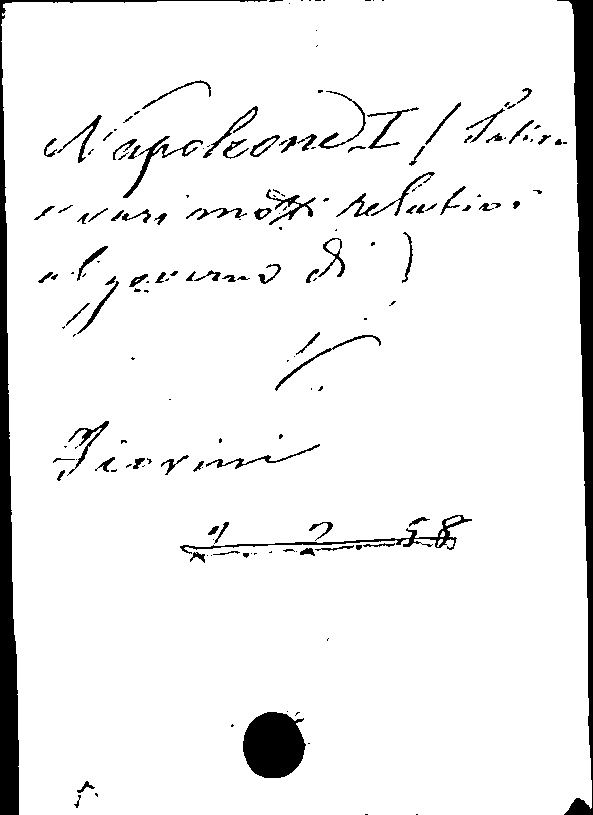 Napoleone I (Satira
e vari motti relativi
al governo di)
V.
Fiorini
1 2 58